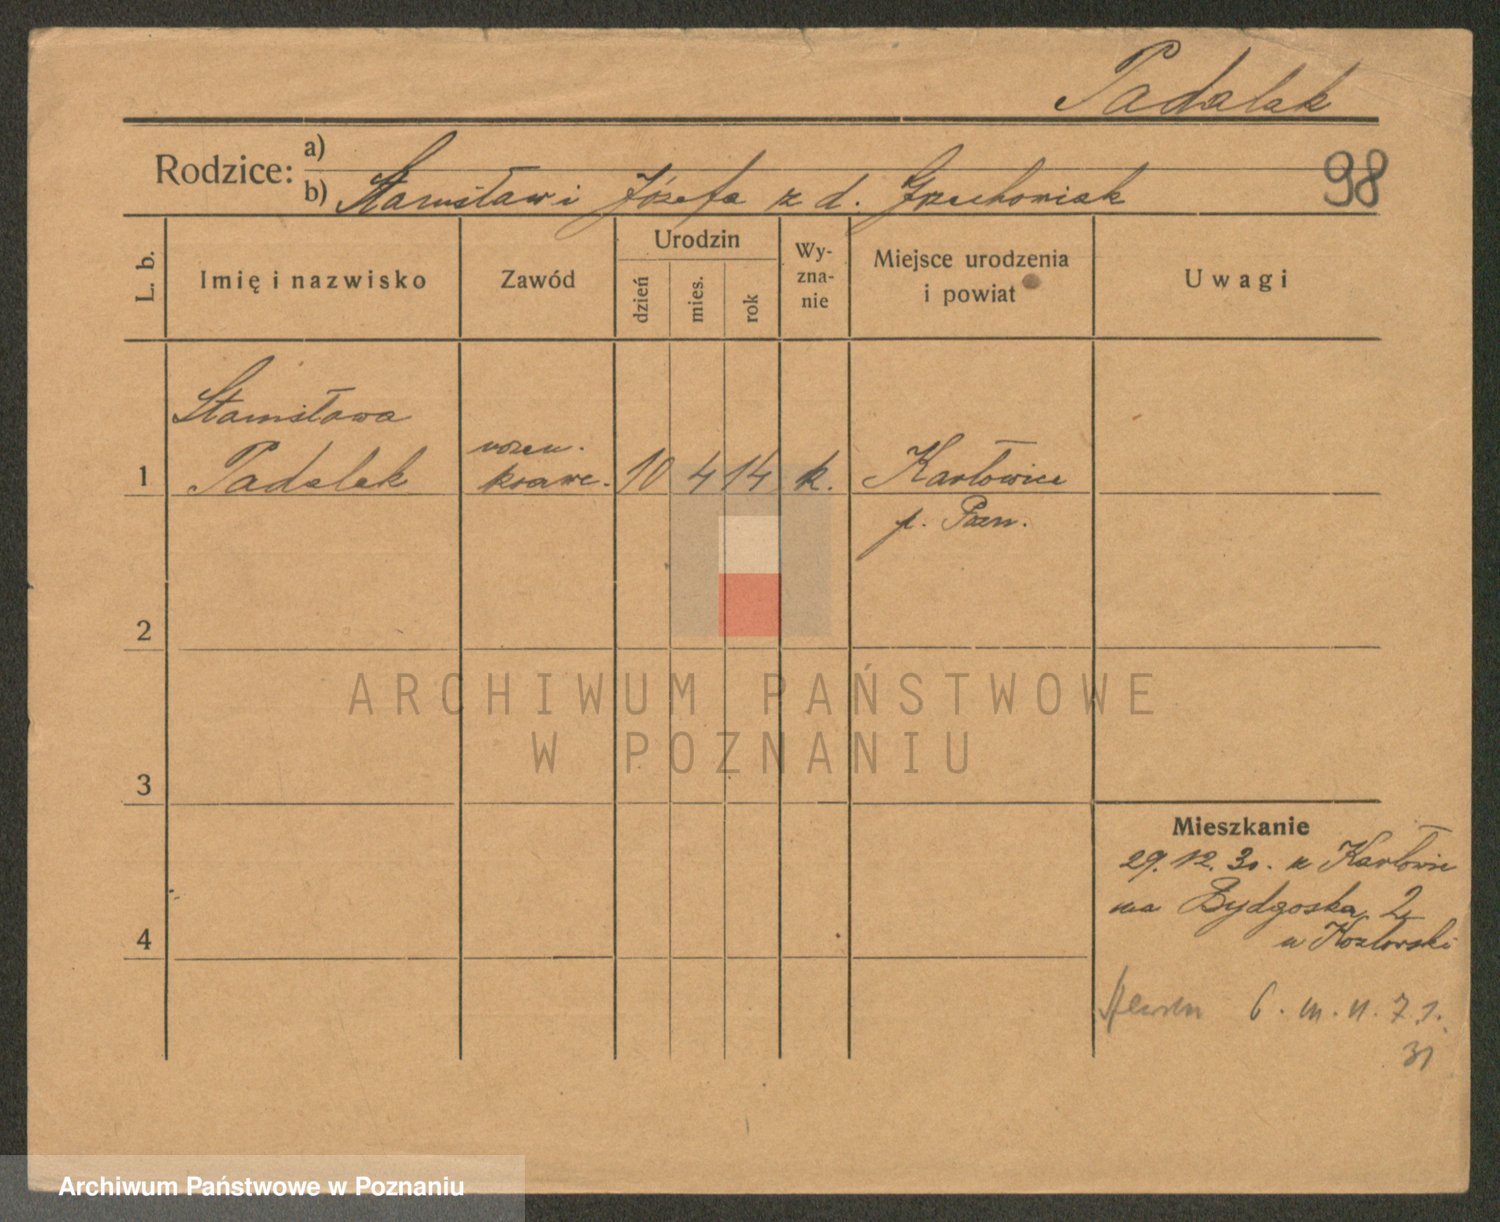 Padalak
Rodzice: a)
b) Stanisław i Józefa z d. Grzechowiak
98
L. b. Imię i nazwisko Zawód Urodzin dzień mies. rok Wyznanie Miejsce urodzenia i powiat Uwagi
Stanisława
1 Padalak uczen. krawc. 10 4 14 k. Karłowice
p. Pozn.
2
ARCHIWUM PAŃSTWOWE
W POZNANIU
3
Mieszkanie
29. 12. 30. z Karłowic
na Bydgoska 2
u Kozłowski
4
6. m. n. 7.1.
31
Archiwum Państwowe w Poznaniu